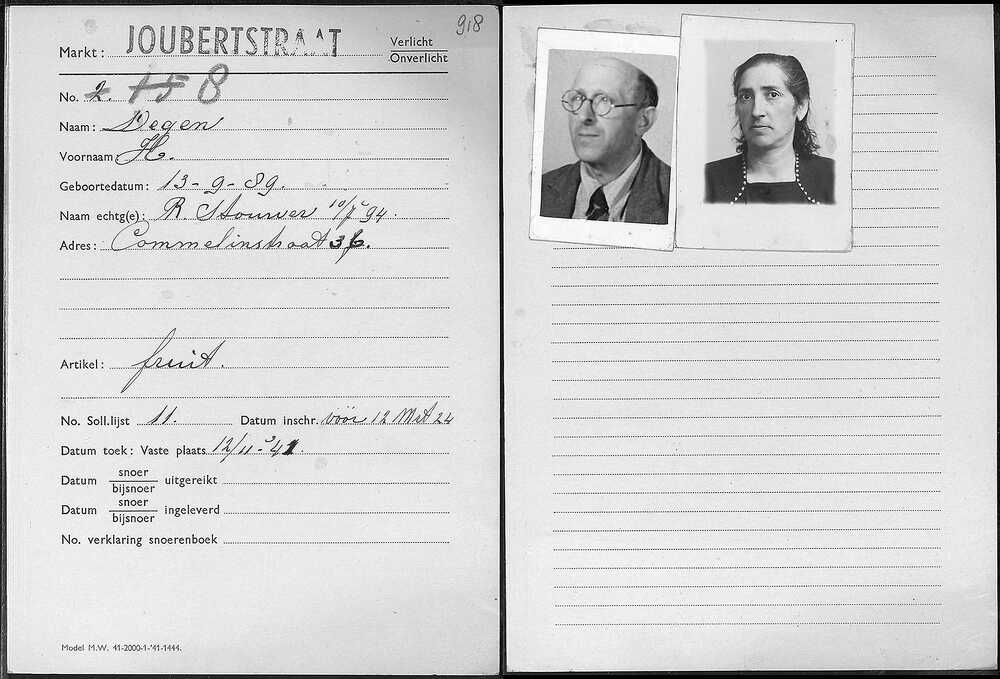 918
Markt: JOUBERTSTRAAT Verlicht
Onverlicht
No. 2. 15 8
Naam: Degen
Voornaam: H.
Geboortedatum: 13-9-89.
Naam echtg(e): R. Stouwer 94.
Adres: Commelinstraat 36.
Artikel: fruit.
No. Soll.lijst 11. Datum inschr. vóór 12 Mrt 24
Datum toek: Vaste plaats 12/11-'41.
Datum snoer
bijsnoer uitgereikt
Datum snoer
bijsnoer ingeleverd
No. verklaring snoerenboek
Model M.W. 41-2000-1-'41-1444.